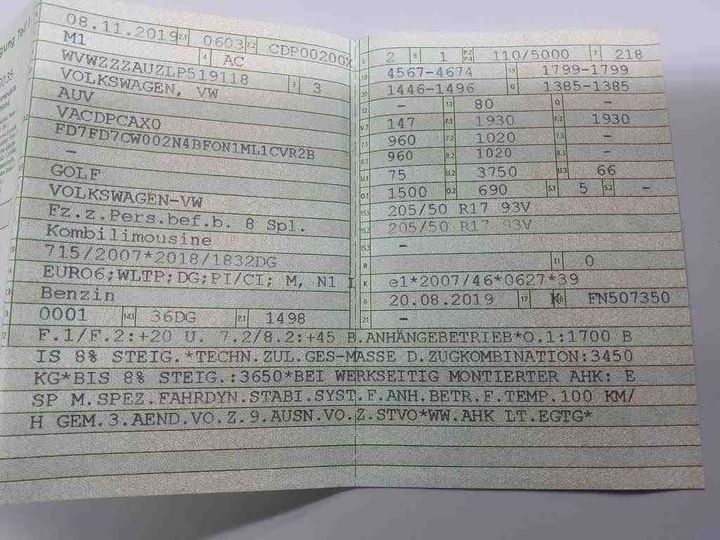 08.11.2019 2.1 0603 2.2 CDP00200X
M1 4 AC
WVWZZZAUZLP519118 3 3
VOLKSWAGEN, VW
AUV
VACDPCAX0
FD7FD7CW002N4BFON1ML1CVR2B
–
GOLF
VOLKSWAGEN-VW
Fz.z.Pers.bef.b. 8 Spl.
Kombilimousine
715/2007*2018/1832DG
EURO6;WLTP;DG;PI/CI; M, N1 I
Benzin
0001 14.1 36DG P.1 1498
2 9 1 P.2 P.4 110/5000 T 218
18 4567–4674 19 1799–1799
20 1446–1496 G 1385–1385
12 – 13 80 Q –
V.7 147 F.1 1930 F.2 1930
7.1 960 7.2 1020 7.3 –
8.1 960 8.2 1020 8.3 –
U.1 75 U.2 3750 U.3 66
O.1 1500 O.2 690 S.1 5 S.2 –
15.1 205/50 R17 93V
15.2 205/50 R17 93V
15.3 –
R 11 0
K e1*2007/46*0627*39
6 20.08.2019 17 K 16 FN507350
21 –
F.1/F.2:+20 U. 7.2/8.2:+45 B.ANHÄNGEBETRIEB*O.1:1700 B
IS 8% STEIG.*TECHN.ZUL.GES-MASSE D.ZUGKOMBINATION:3450
KG*BIS 8% STEIG.:3650*BEI WERKSEITIG MONTIERTER AHK: E
SP M.SPEZ.FAHRDYN.STABI.SYST.F.ANH.BETR.F.TEMP.100 KM/
H GEM.3.AEND.VO.Z.9.AUSN.VO.Z.STVO*WW.AHK LT.EGTG*